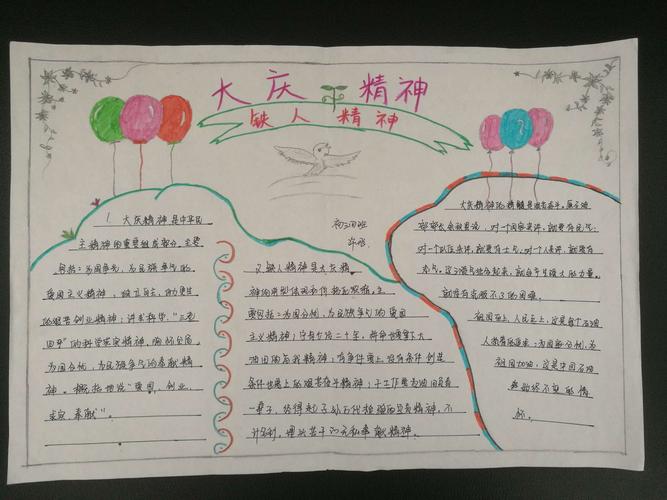 大庆精神
铁人精神
1. 大庆精神是中华民
主精神的重要组成部分,主要
包括:为国争光,为民族争气的
爱国主义精神,独立自主,自力更生
的艰苦创业精神;讲求科学,"三老
四严"的科学求实精神,胸怀全局
为国分忧,为民族争气的奉献精
神。概括地说"爱国,创业,
求实,奉献"。
初三四班
2.铁人精神是大庆精
神的典型体现和
要包括:为国分忧,为民族争气的爱国
主义精神;宁肯少活二十年,拼命也要拿下大
油田的忘我精神;有条件要上,没有条件创造
条件也要上的艰苦奋斗精神;干工作要为油田负责
一辈子,经得起子孙万代检验的负责精神,不
计名利,埋头苦干的无私奉献精神。
大庆精神的精髓是艰苦奋斗。
对一个国家来讲,就要有民气;
对一个队伍来讲,就要有士气,对一个人来讲,就要有
志气。这三股气结合起来,就会产生强大的力量。
就没有克服不了的困难。
祖国至上,人民至上,这是每个石油
人
祖国加油,这是中国石油